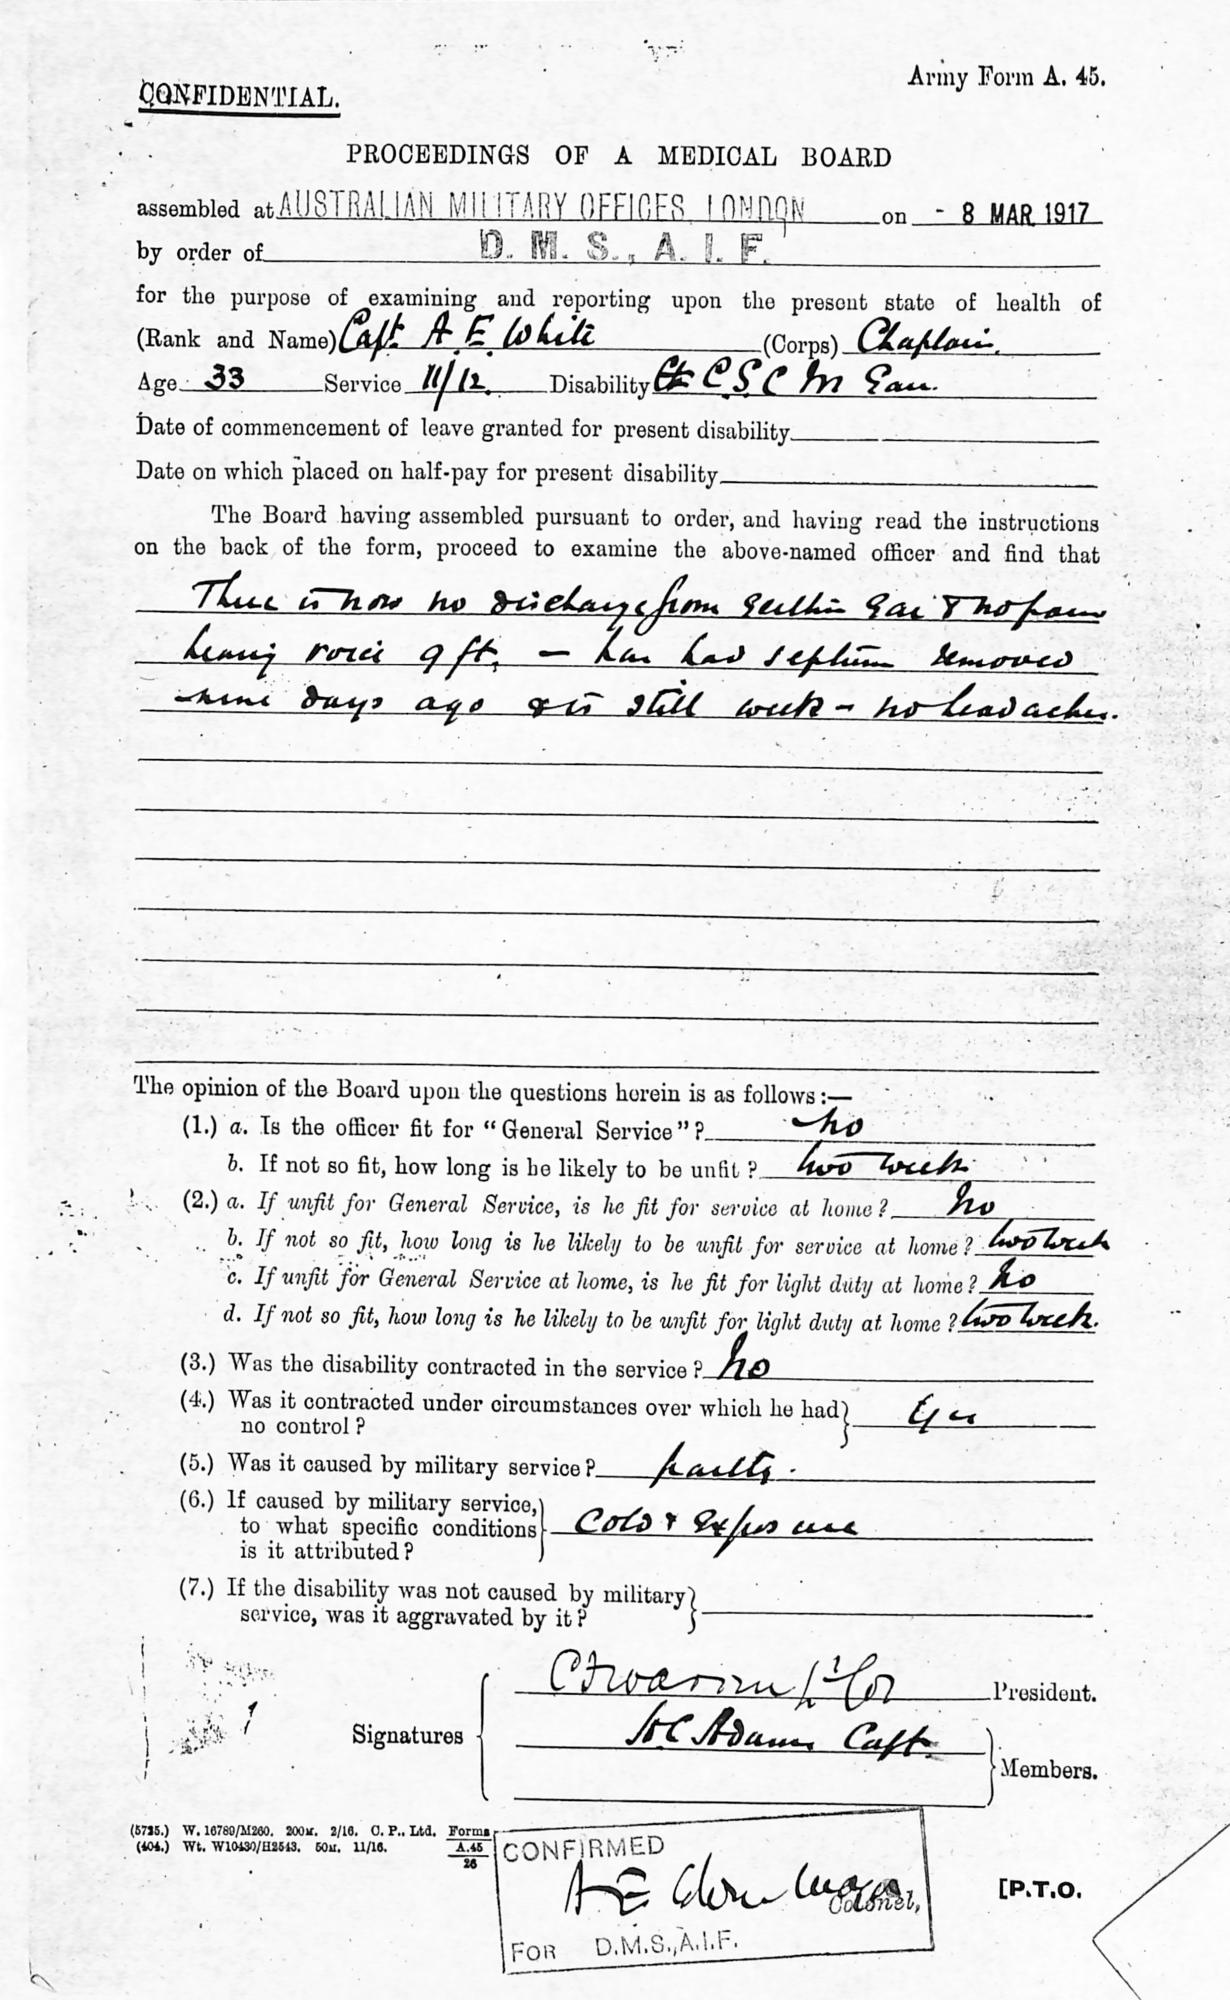 Army Form A. 45.
CONFIDENTIAL.
PROCEEDINGS OF A MEDICAL BOARD
assembled at AUSTRALIAN MILITARY OFFICES, LONDON on - 8 MAR 1917
by order of D. M. S., A. I. F.
for the purpose of examining and reporting upon the present state of health of
(Rank and Name) Capt. A. E. White (Corps) Chaplain.
Age 33 Service 11/12. Disability C S C M Ear.
Date of commencement of leave granted for present disability
Date on which placed on half-pay for present disability
The Board having assembled pursuant to order, and having read the instructions
on the back of the form, proceed to examine the above-named officer and find that
There is now no discharge from Ear & no pain
hearing voice 9 ft. – has had septum removed
nine days ago & is still weak – no headaches.
The opinion of the Board upon the questions herein is as follows :—
(1.) a. Is the officer fit for "General Service"? No
b. If not so fit, how long is he likely to be unfit? two weeks
(2.) a. If unfit for General Service, is he fit for service at home? No
b. If not so fit, how long is he likely to be unfit for service at home? two weeks
c. If unfit for General Service at home, is he fit for light duty at home? No
d. If not so fit, how long is he likely to be unfit for light duty at home? two weeks.
(3.) Was the disability contracted in the service? No
(4.) Was it contracted under circumstances over which he had } Yes
no control?
(5.) Was it caused by military service? partly.
(6.) If caused by military service,
to what specific conditions } Cold & Exposure
is it attributed?
(7.) If the disability was not caused by military }
service, was it aggravated by it?
President.
Signatures { H C Adams Capt.
Members.
(5725.) W. 16789/M260. 200M. 2/16. C. P., Ltd. Forms
(404.) Wt. W10430/H2543. 50M. 11/16. A.45
26
CONFIRMED
Colonel,
FOR D.M.S., A.I.F.
[P.T.O.